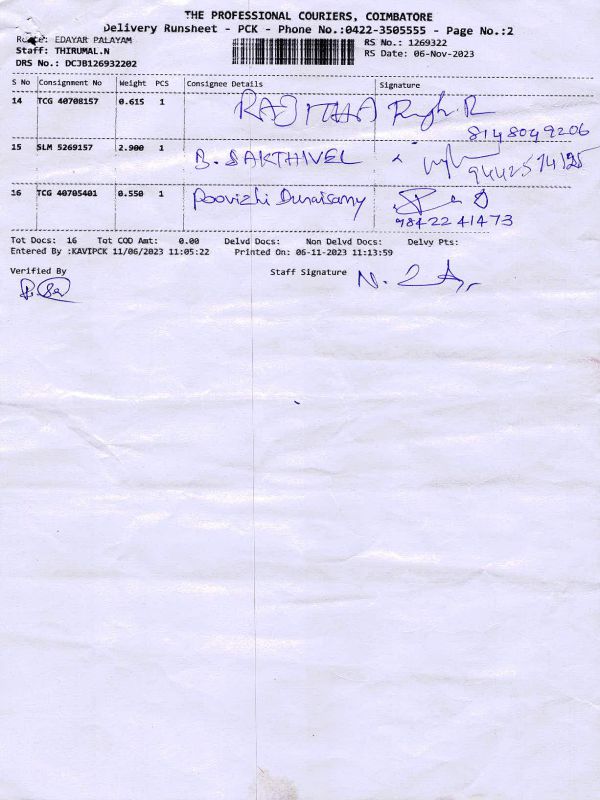 THE PROFESSIONAL COURIERS, COIMBATORE
Delivery Runsheet - PCK - Phone No.:0422-3505555 - Page No.:2
Route: EDAYAR PALAYAM
RS No.: 1269322
Staff: THIRUMAL.N
RS Date: 06-Nov-2023
DRS No.: DCJB126932202
S No Consignment No Weight PCS Consignee Details Signature
14 TCG 40708157 0.615 1 RAJITHA
8148049206
15 SLM 5269157 2.900 1 B. SAKTHIVEL
16 TCG 40705401 0.550 1 Poovizhi Duraisamy
98422 41473
Tot Docs: 16 Tot COD Amt: 0.00 Delvd Docs: Non Delvd Docs: Delvy Pts:
Entered By :KAVIPCK 11/06/2023 11:05:22 Printed On: 06-11-2023 11:13:59
Verified By Staff Signature